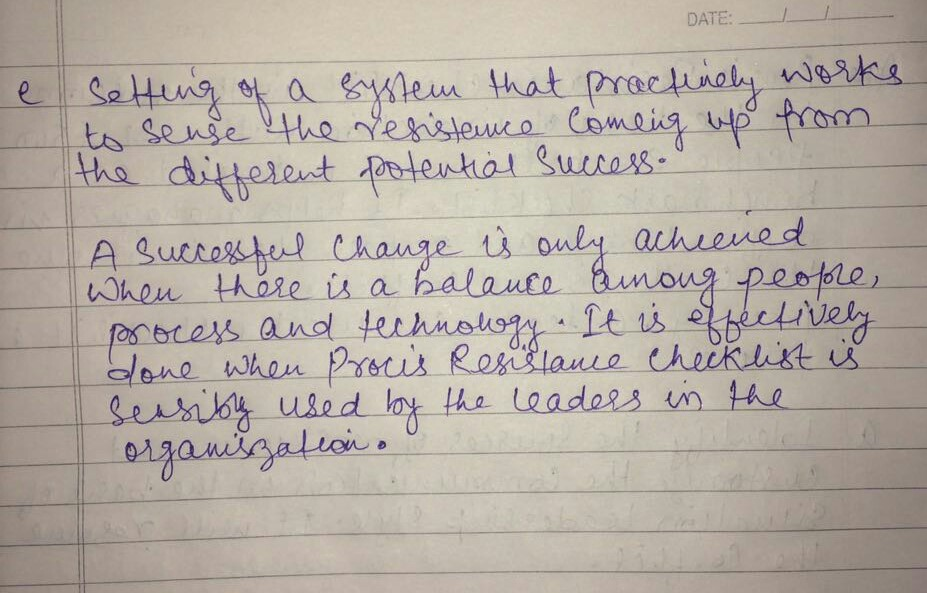 DATE: __/__/____
e Setting of a system that practively works
to sense the resistence Comeing up from
the different potential Success.
A Successful Change is only achieved
when there is a balance among people,
process and technology. It is effectively
done when Procis Resistance Checklist is
Sensibly used by the leaders in the
organiszation.